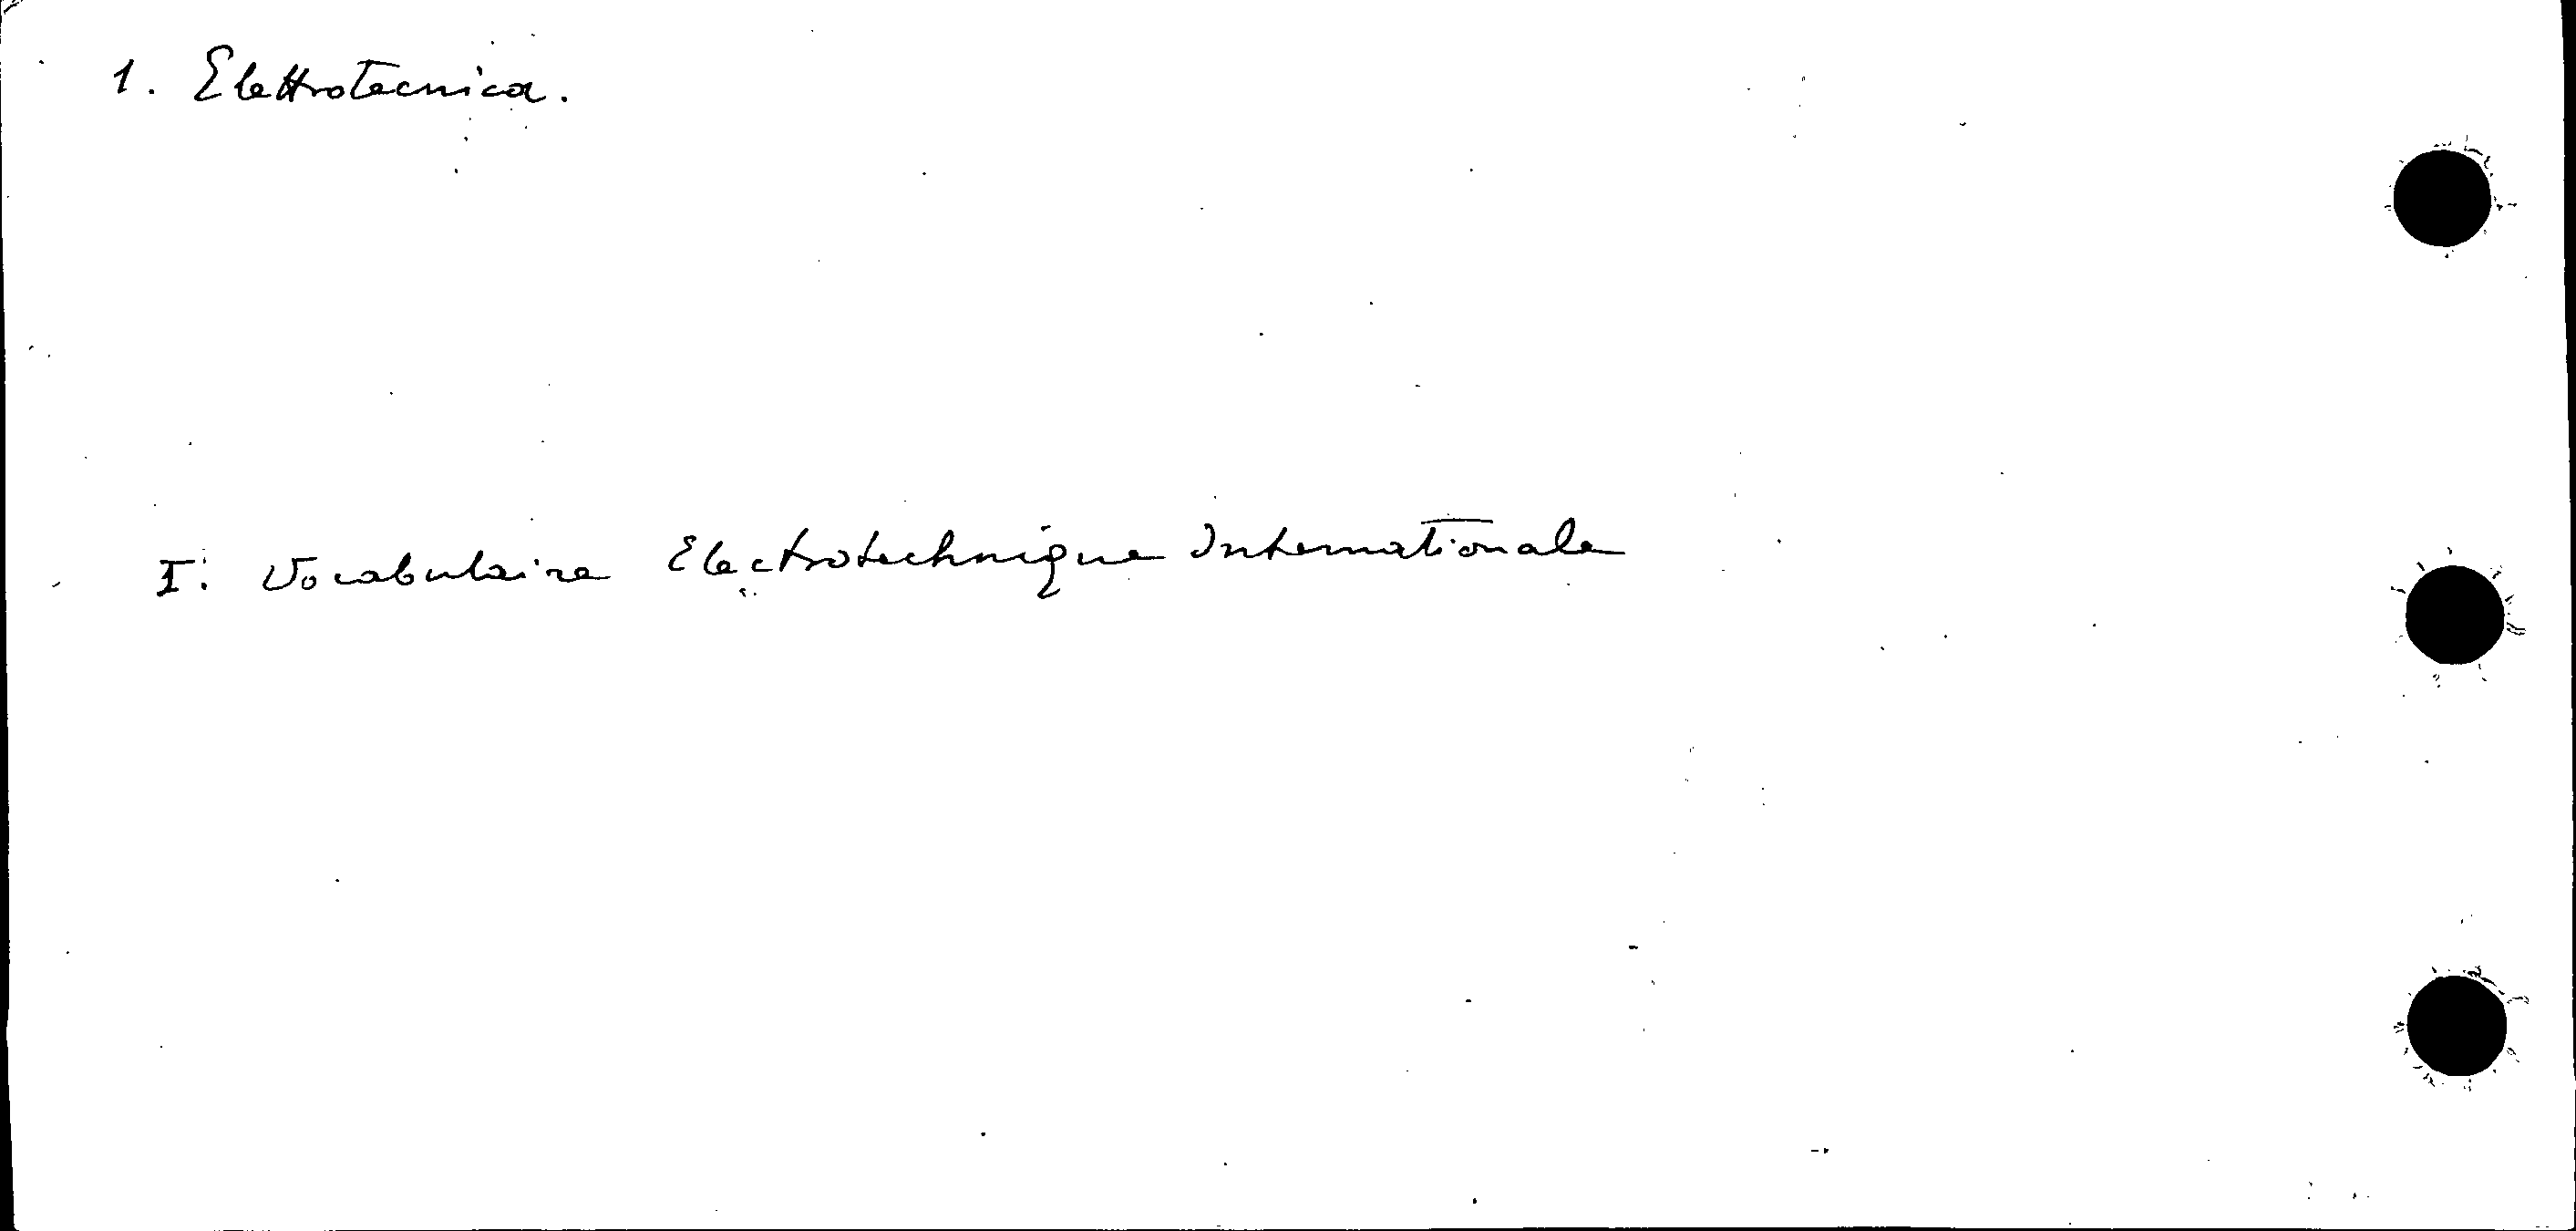 1. Elettrotecnica.
I: Vocabulaire Electrotechnique Internationale